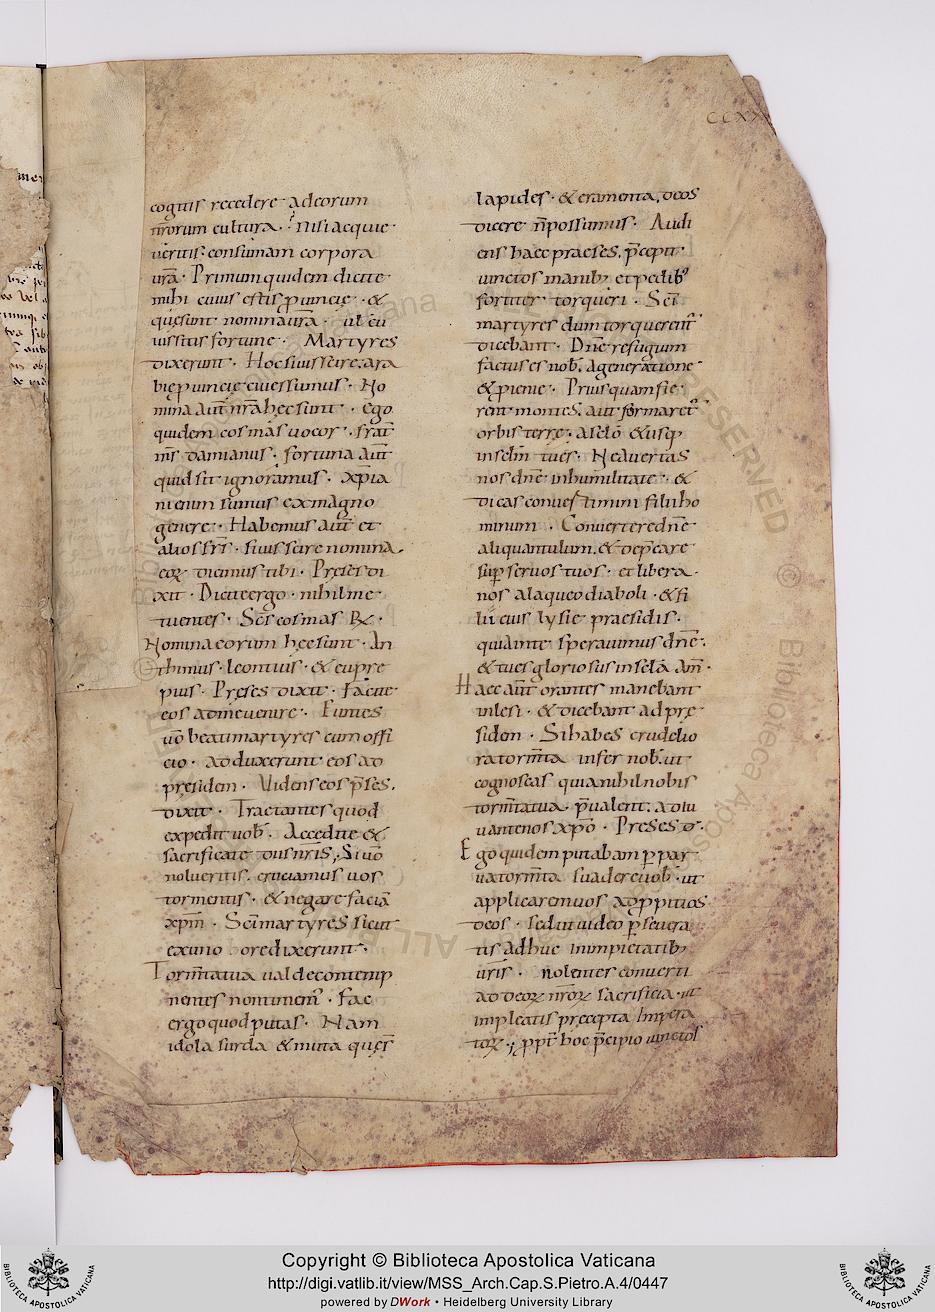 CCXX
cogitis recedere adeorum
nr̄orum cultura. Nisi acquie
ueritis consumam corpora
ura᷃. Primum quidem dicite
mihi cuius estis ꝓuincie. &
quęsunt nomina ur̄a. ul̄ cu
iussitis fortune. Martyres
dixerunt. Hocsiuis scire. ara
bię ꝓuincię ciues sumus. No
mina aut̄ nr̄a hęc sunt. Ego
quidem cosmas uocor. frat̄
m̄s damianus. fortuna aut̄
quid sit ignoramus. xp̄ia
ni enim sumus ex magno
genere. Habemus aut̄ et
alios fr̄s. siuis scire nomina.
eoꝝ dicimus tibi. Preses di
xit. Dicite ergo. nihil me
tuentes. Sc̄s cosmas R̄.
Nomina eorum hęc sunt. An
thimus. leontius. & eupre
pius. Pręses dixit. facite
eos ad me uenire. Euntes
uō beati martyres cum offi
cio. adduxerunt eos ad
presidem. Uidens eos p̄ses.
dixit. Tractantes quod
expedit uob̄. Accedite &
sacrificate diis nr̄is, Si uō
nolueritis. cruciamus uos
tormentis. & negare faciā
xp̄m. Sc̄i martyres sicut
ex uno ore dixerunt.
Torm̄ta tua ualde contemp
nentes non timem᷒. Fac
ergo quod putas. Nam
idola surda & muta quęs̄
lapides. & eramenta, deos
dicere n̄ possumus. Audi
ens haec praeses. p̄cepit
uinctos manib; et pedib᷒
fortiter torqueri. Sc̄i
martyres dum torquerent᷒
dicebant. Dn̄e refugium
factus es nob̄. a generatione
& ꝓgenie. Prius quam fie
rent montes. aut formaret᷒
orbis terre. a sc̄lō & usq;
in sclm̄ tu es. Ne auertas
nos dn̄e in humilitate. &
dicas conuertimini filii ho
minum. Conuertere dn̄e
aliquantulum. & dep̄care
sup̄ seruos tuos. et libera
nos a laqueo diaboli. & fi
lii eius lysie praesidis.
quia in te sperauimus dn̄e.
& tu es gloriosus in sc̄la. Am̄.
Haec aut̄ orantes manebant
inlesi. & dicebant ad pre
sidem. Si habes crudelio
ra torm̄ta infer nob̄. ut
cognoscas quia nihil nobis
torm̄ta tua. p̄ualent. adiu
uante nos xp̄o. Preses d̄.
Ego quidem putabam ꝑ par
ua torm̄ta suadere uob̄. ut
applicarem uos ad ꝓpitios
deos. sed ut uideo ꝑseuera
tis adhuc in impietatib;
uris. nolentes conuerti
ad deoꝝ nr̄oꝝ sacrificia. ut
impleatis precepta impera
toꝝ. ; ꝓpt̄ hoc p̄cipio uinctos
Copyright © Biblioteca Apostolica Vaticana
http://digi.vatlib.it/view/MSS_Arch.Cap.S.Pietro.A.4/0447
powered by DWork • Heidelberg University Library